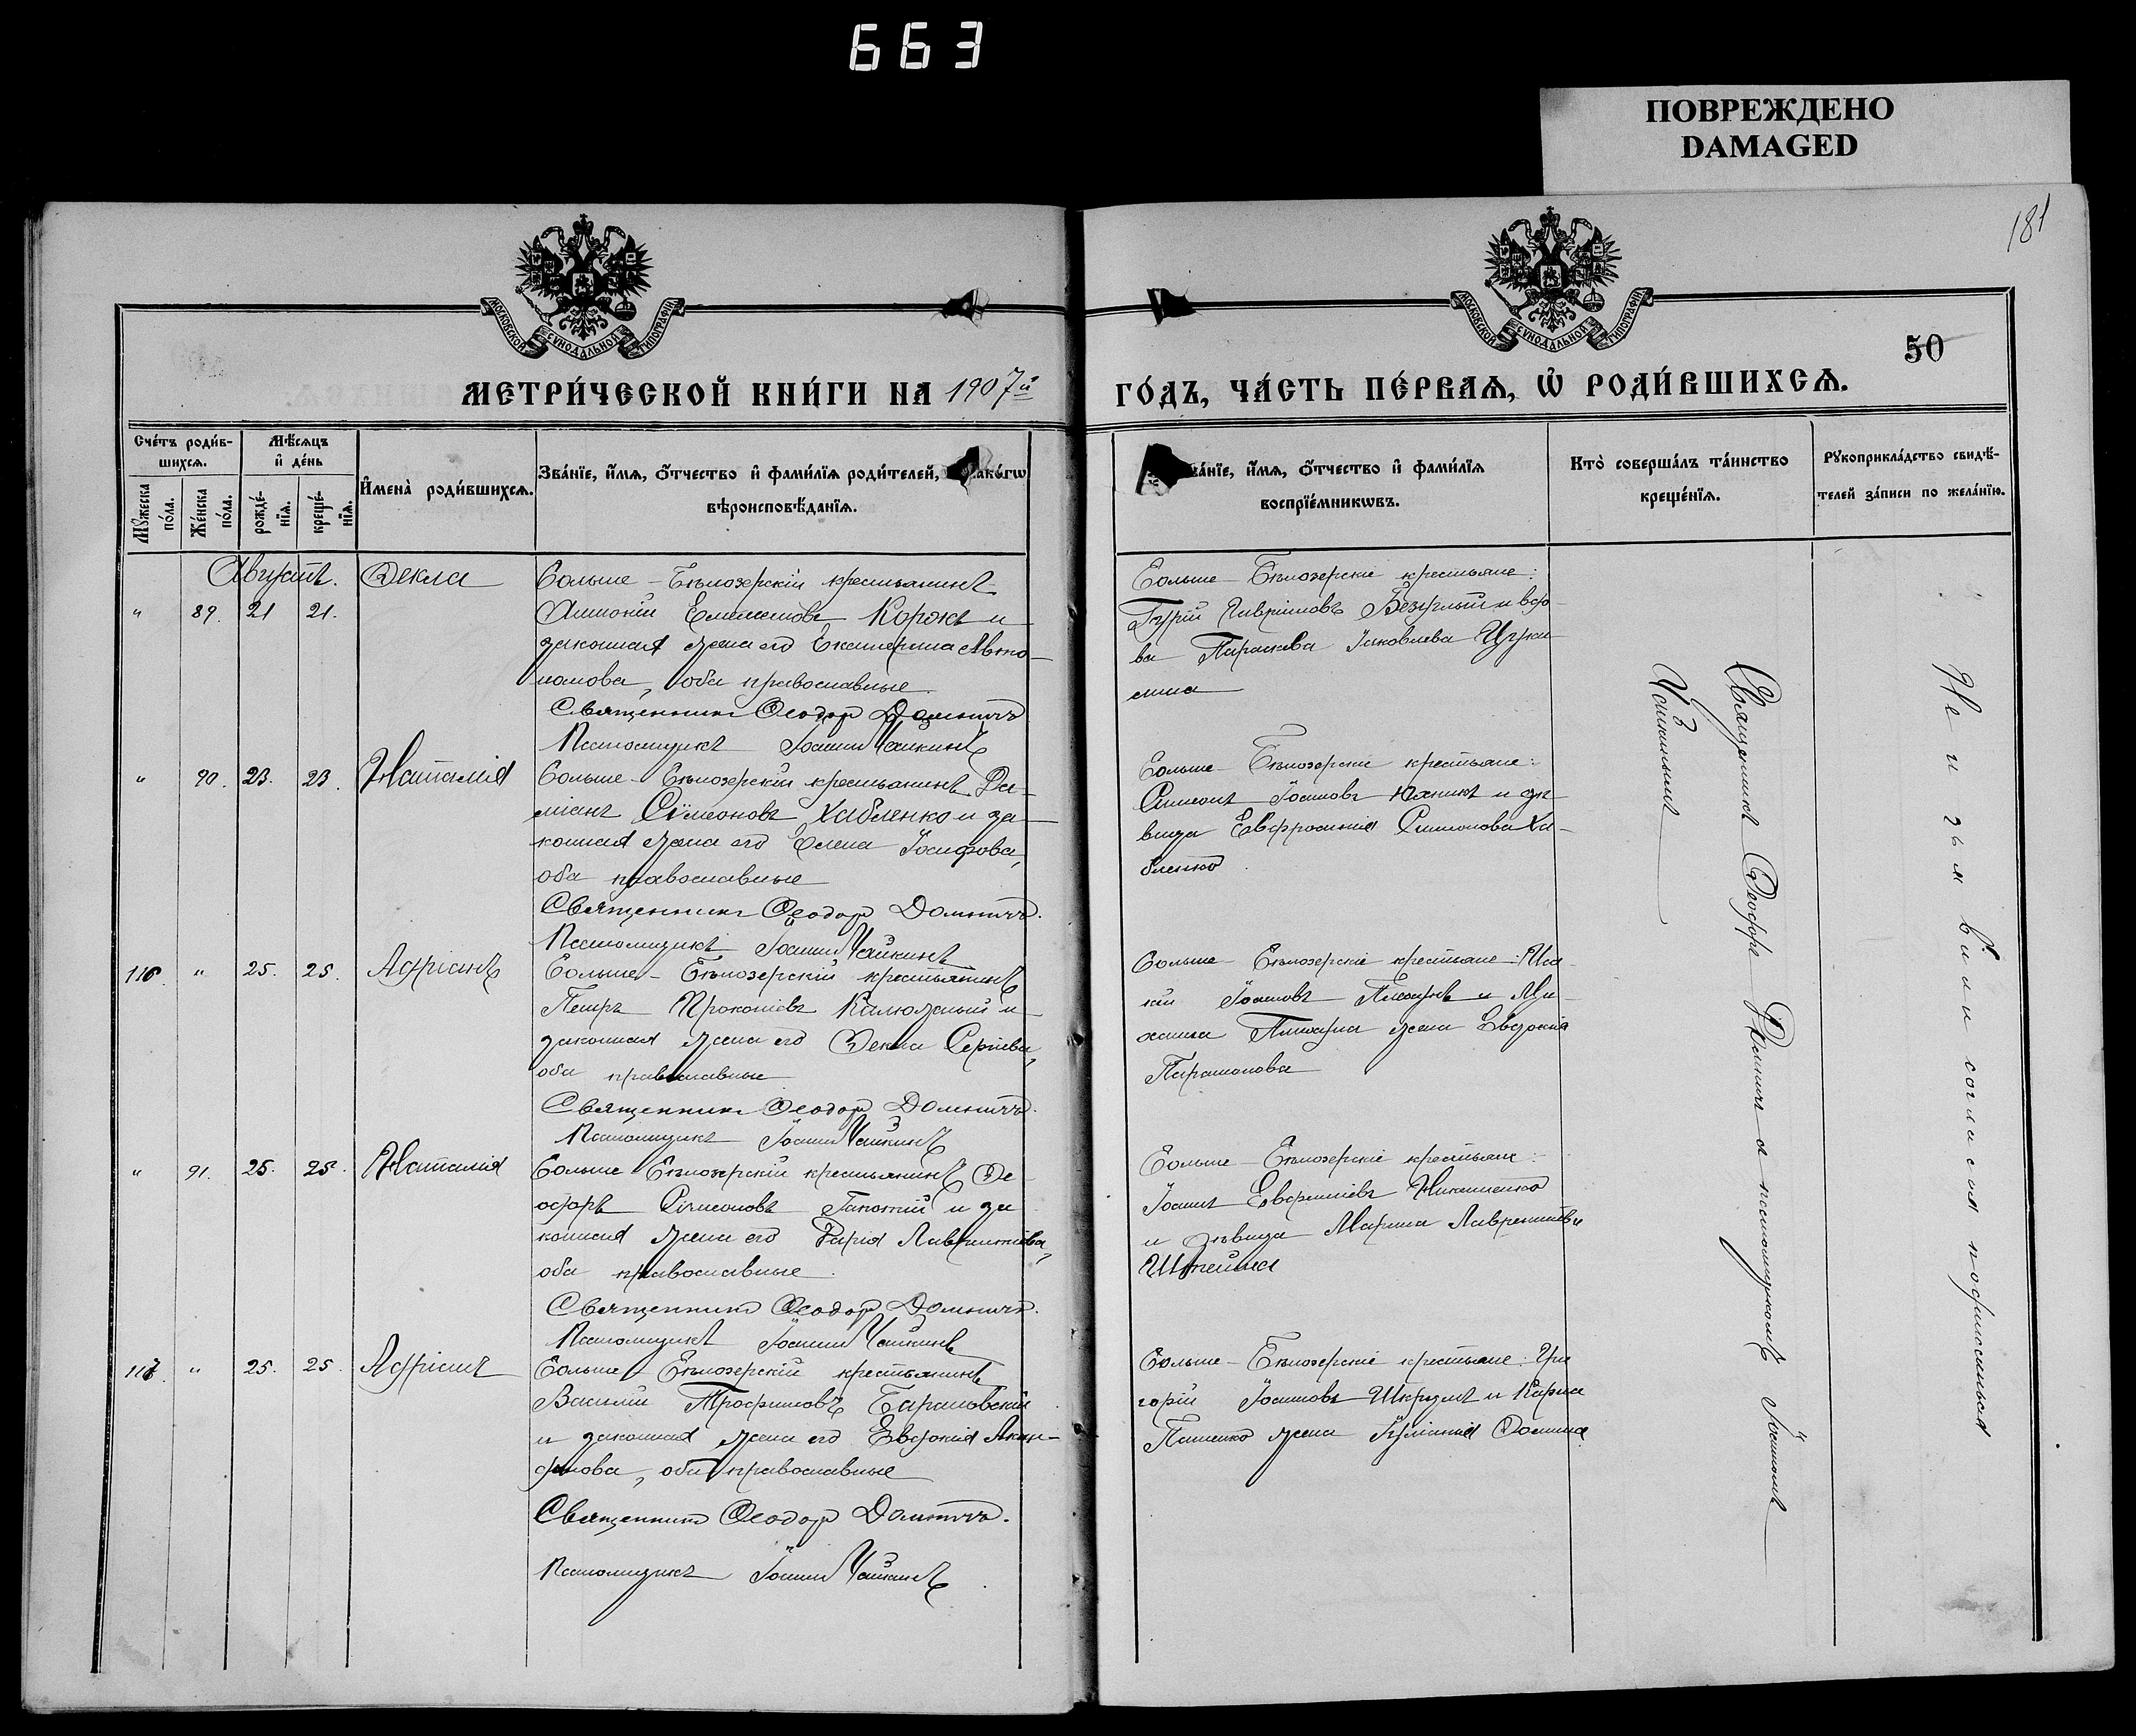 663
ПОВРЕЖДЕНО
DAMAGED
181
МОСКОВСКОЙ СѴНОДАЛЬНОЙ ТИПОГРАФІИ
МОСКОВСКОЙ СѴНОДАЛЬНОЙ ТИПОГРАФІИ
50
МЕТРИ́ЧЕСКОЙ КНИ́ГИ НА 1907й
ГО́ДЪ, ЧА́СТЬ ПЕ́РВАѦ, Ѡ҆ РОДИ́ВШИХСѦ.
Сче́тъ роди́в-
шихсѧ.
Мꙋ́жеска по́ла.
Же́нска по́ла.
Мѣ́сѧцъ и҆ де́нь
рожде́-нїѧ.
креще́-нїѧ.
И҆мена̀ роди́вшихсѧ.
Зва́нїе, и҆́мѧ, ѻ҆́тчество и҆ фами́лїѧ роди́телей, како́гѡ
вѣроисповѣ́данїѧ.
ва́нїе, и҆́мѧ, ѻ҆́тчество и҆ фами́лїѧ
воспрїе́мникѡвъ.
Кто̀ соверша́лъ та́инство
креще́нїѧ.
Рꙋкоприкла́дство свидѣ́-
телей за́писи по жела́нїю.
Августъ.
" 89. 21 21.
Ѳекла
Больше-Бѣлозерскій крестьянинъ
Климентовъ Коржъ и
законная жена его Екатерина Авто-
номова, оба православные.
Священникъ Ѳеодоръ Домничъ
Псаломщикъ Іоаннъ Чайкинъ
Больше-Бѣлозерскіе крестьяне:
Гурій Гавріиловъ Безуглый и вдо-
ва Параскева Іаковлева Цука-
" 90. 23. 23.
Наталія
Больше-Бѣлозерскій крестьянинъ Да-
міанъ Сѵмеоновъ Хабленко и за-
конная жена его Елена Іосифова,
оба православные
Священникъ Ѳеодоръ Домничъ.
Псаломщикъ Іоаннъ Чайкинъ
Больше-Бѣлозерскіе крестьяне:
Симеонъ Іоанновъ Юхникъ и дѣ-
вица Евфросинія Симеонова Ха-
бленко.
116. " 25. 25.
Адріанъ
Больше-Бѣлозерскій крестьянинъ
Петръ Прокопіевъ Калюжный и
законная жена его Ѳекла Сергіева,
оба православные
Священникъ Ѳеодоръ Домничъ.
Псаломщикъ Іоаннъ Чайкинъ
Больше-Бѣлозерскіе крестьяне:
Іоанновъ и Ми-
хаила жена Евдокія
Парамонова
" 91. 25. 25.
Наталія
Больше-Бѣлозерскій крестьянинъ Ѳе-
одоръ Сѵмеоновъ Гапотій и за
конная жена его Дарія Лаврентіева,
оба православные.
Священникъ Ѳеодоръ Домничъ.
Псаломщикъ Іоаннъ Чайкинъ
Больше-Бѣлозерскіе крестьяне:
Іоаннъ Никитенко
и дѣвица Марина Лаврентіева
117. " 25. 25.
Адріанъ
Больше-Бѣлозерскій крестьянинъ
Василій Трофимовъ Барановскій
и законная жена его Евдокія Акин-
финова, оба православные
Священникъ Ѳеодоръ Домничъ.
Псаломщикъ Іоаннъ Чайкинъ.
Больше-Бѣлозерскіе крестьяне: Гри
горій Іоанновъ и Карпа
Пащенко жена Іуліанія Ѳомина
Священникъ Ѳеодоръ Домничъ съ псаломщикомъ Іоанномъ
Чайкинымъ